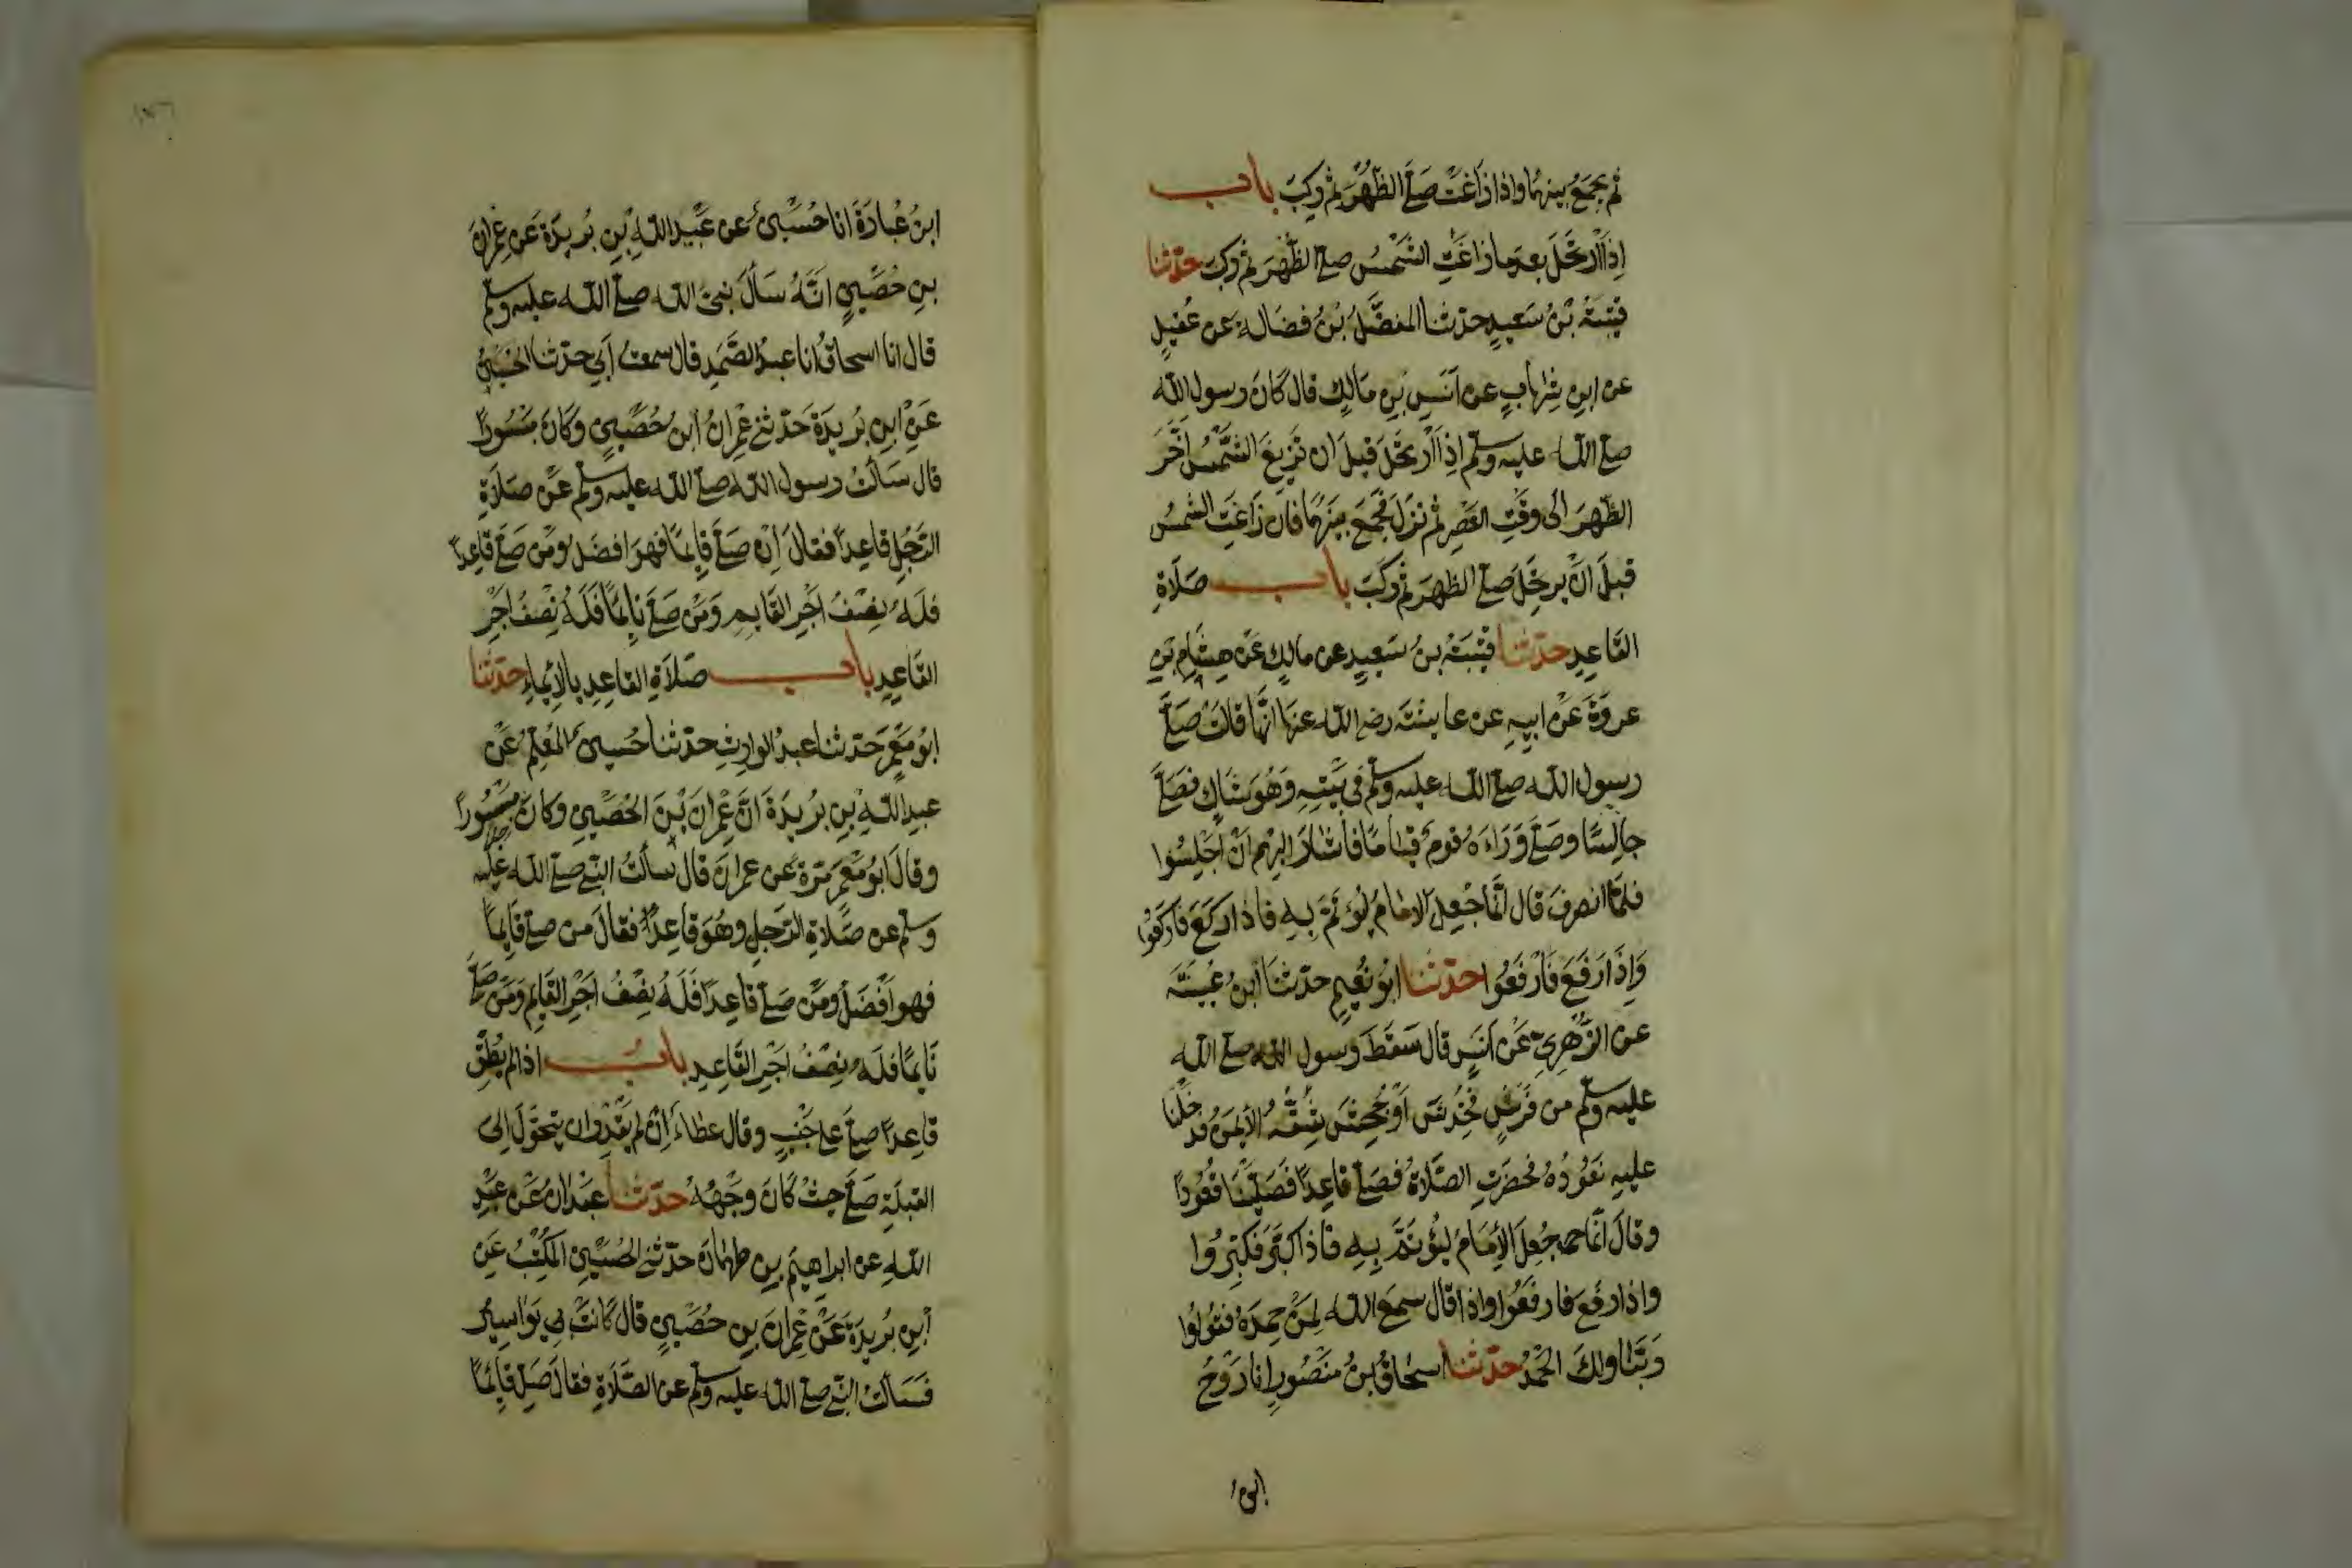 ثم يجمع بينهما واذا زاغت صلى الظهر ثم ركب باب
اذا ارتحل بعد ما زاغت الشمس صلى الظهر ثم ركب حدثنا
قتيبة بن سعيد حدثنا المفضل بن فضالة عن عقيل
عن ابن شهاب عن انس بن مالك قال كان رسول الله
صلى الله عليه وسلم اذا ارتحل قبل ان تزيغ الشمس اخر
الظهر الى وقت العصر ثم نزل فجمع بينهما فان زاغت الشمس
قبل ان يرتحل صلى الظهر ثم ركب باب صلاة
القاعد حدثنا قتيبة بن سعيد عن مالك عن هشام بن
عروة عن ابيه عن عايشة رضي الله عنها انها قالت صلى
رسول الله صلى الله عليه وسلم في بيته وهو شاك فصلى
جالسا وصلى وراءه قوم قياما فاشار اليهم ان اجلسوا
فلما انصرف قال انما جعل الامام ليؤتم به فاذا ركع فاركعوا
واذا رفع فارفعوا حدثنا ابو نعيم حدثنا ابن عيينة
عن الزهري عن انس قال سقط رسول الله صلى الله
عليه وسلم من فرس فخدش او فجحش شقه الايمن فدخلنا
عليه نعوده فحضرت الصلاة فصلى قاعدا فصلينا قعودا
وقال انما جعل الامام ليؤتم به فاذا كبر فكبروا
واذا رفع فارفعوا واذا قال سمع الله لمن حمده فقولوا
ربنا ولك الحمد حدثنا اسحاق بن منصور انا روح
ابن عبادة انا حسين عن عبيد الله بن بريدة عن عمران
بن حصين انه سأل نبي الله صلى الله عليه وسلم
قال انا اسحاق انا عبد الصمد قال سمعت ابي حدثنا الحسين
عن ابن بريدة حدثني عمران ابن حصين وكان مبسورا
قال سألت رسول الله صلى الله عليه وسلم عن صلاة
الرجل قاعدا فقال ان صلى قايما فهو افضل ومن صلى قاعدا
فله نصف اجر القايم ومن صلى نايما فله نصف اجر
القاعد باب صلاة القاعد بالايماء حدثنا
ابو معمر حدثنا عبد الوارث حدثنا حسين المعلم عن
عبد الله بن بريدة ان عمران بن الحصين وكان مبسورا
وقال ابو معمر مرة عن عمران قال سألت النبي صلى الله عليه
وسلم عن صلاة الرجل وهو قاعدا فقال من صلى قايما
فهو افضل ومن صلى قاعدا فله نصف اجر القايم ومن صلى
نايما فله نصف اجر القاعد باب اذا لم يطق
قاعدا صلى على جنب وقال عطاء ان لم يقدر ان يتحول الى
القبلة صلى حيث كان وجهه حدثنا عبدان عن عبد
الله عن ابراهيم بن طهمان حدثني الحسين المكتب عن
ابن بريدة عن عمران بن حصين قال كانت بي بواسير
فسألت النبي صلى الله عليه وسلم عن الصلاة فقال صل قائما